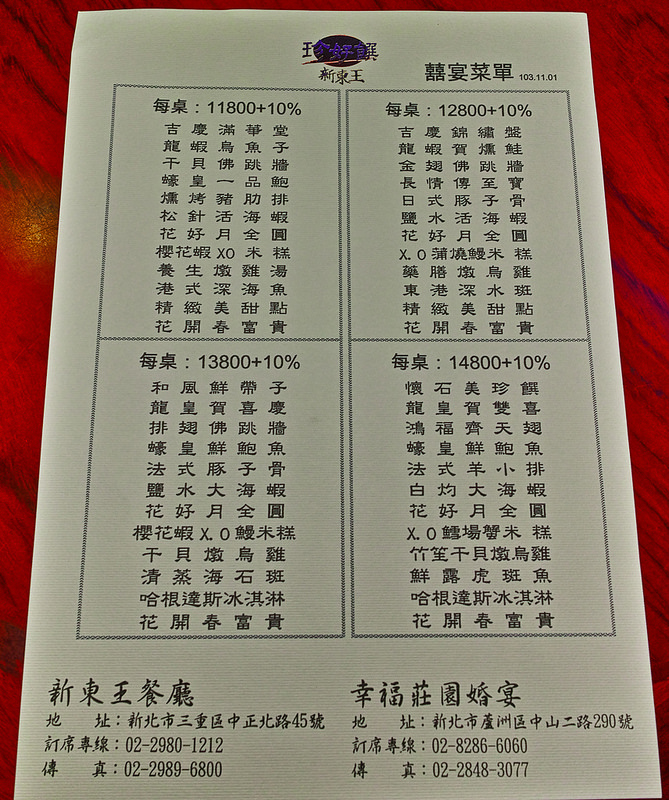 珍好饌
新東王
囍宴菜單 103.11.01
每桌：11800+10%
吉慶滿華堂
龍蝦烏魚子
干貝佛跳牆
蠔皇一品鮑
燻烤豬肋排
松針活海蝦
花好月全圓
櫻花蝦XO米糕
養生燉雞湯
港式深海魚
精緻美甜點
花開春富貴
每桌：12800+10%
吉慶錦繡盤
龍蝦賀燻鮭
金翅佛跳牆
長情傳至寶
日式豚子骨
鹽水活海蝦
花好月全圓
X.O蒲燒鰻米糕
藥膳燉烏雞
東港深水斑
精緻美甜點
花開春富貴
每桌：13800+10%
和風鮮帶子
龍皇賀喜慶
排翅佛跳牆
蠔皇鮮鮑魚
法式豚子骨
鹽水大海蝦
花好月全圓
櫻花蝦X.O鰻米糕
干貝燉烏雞
清蒸海石斑
哈根達斯冰淇淋
花開春富貴
每桌：14800+10%
懷石美珍饌
龍皇賀雙喜
鴻福齊天翅
蠔皇鮮鮑魚
法式羊小排
白灼大海蝦
花好月全圓
X.O鱈場蟹米糕
竹笙干貝燉烏雞
鮮露虎斑魚
哈根達斯冰淇淋
花開春富貴
新東王餐廳
地　　址：新北市三重區中正北路45號
訂席專線：02-2980-1212
傳　　真：02-2989-6800
幸福莊園婚宴
地　　址：新北市蘆洲區中山二路290號
訂席專線：02-8286-6060
傳　　真：02-2848-3077